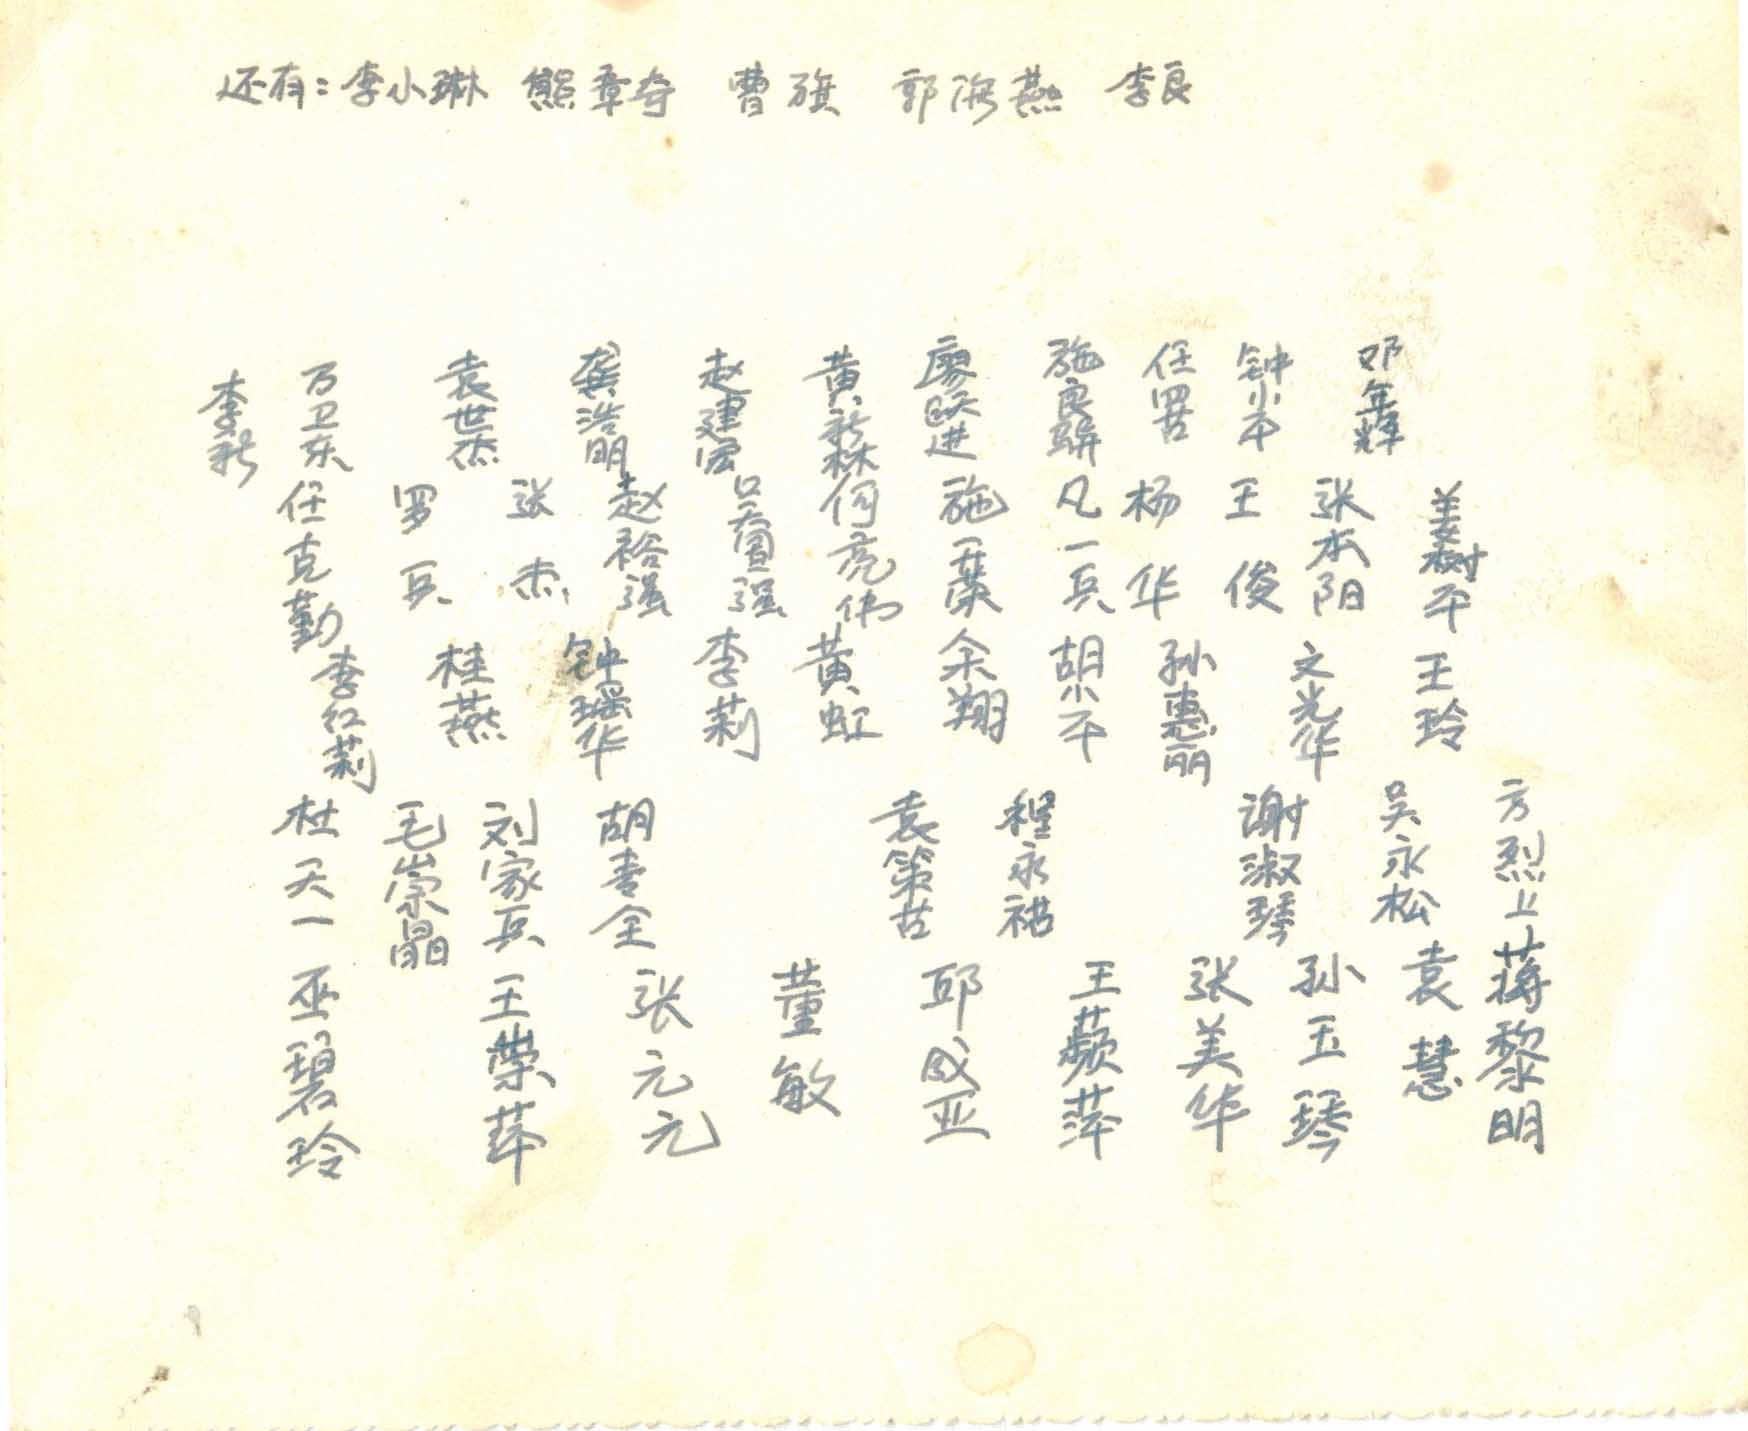 还有：李小琳 熊章奇 曹旗 郭海燕 李良
李新 万卫东 袁世杰 龚浩明 赵建宏 黄新林 廖跃进 施良骈 任罢 钟小平 邓年辉
任克勤 罗兵 张杰 赵裕强 吴圁强 何亮伟 施一燊 凡一兵 杨华 王俊 张木阳 姜树平
李红莉 桂燕 钟瑶华 李莉 黄虹 余翔 胡小平 孙惠丽 文光华 王玲
杜天一 毛崇晶 刘家兵 胡青全 袁策古 程永祜 谢淑琴 吴永松 方烈上
巫碧玲 王崇苹 张元元 董敏 邱成亚 王蘋萍 张美华 孙玉琴 袁慧 蒋黎明